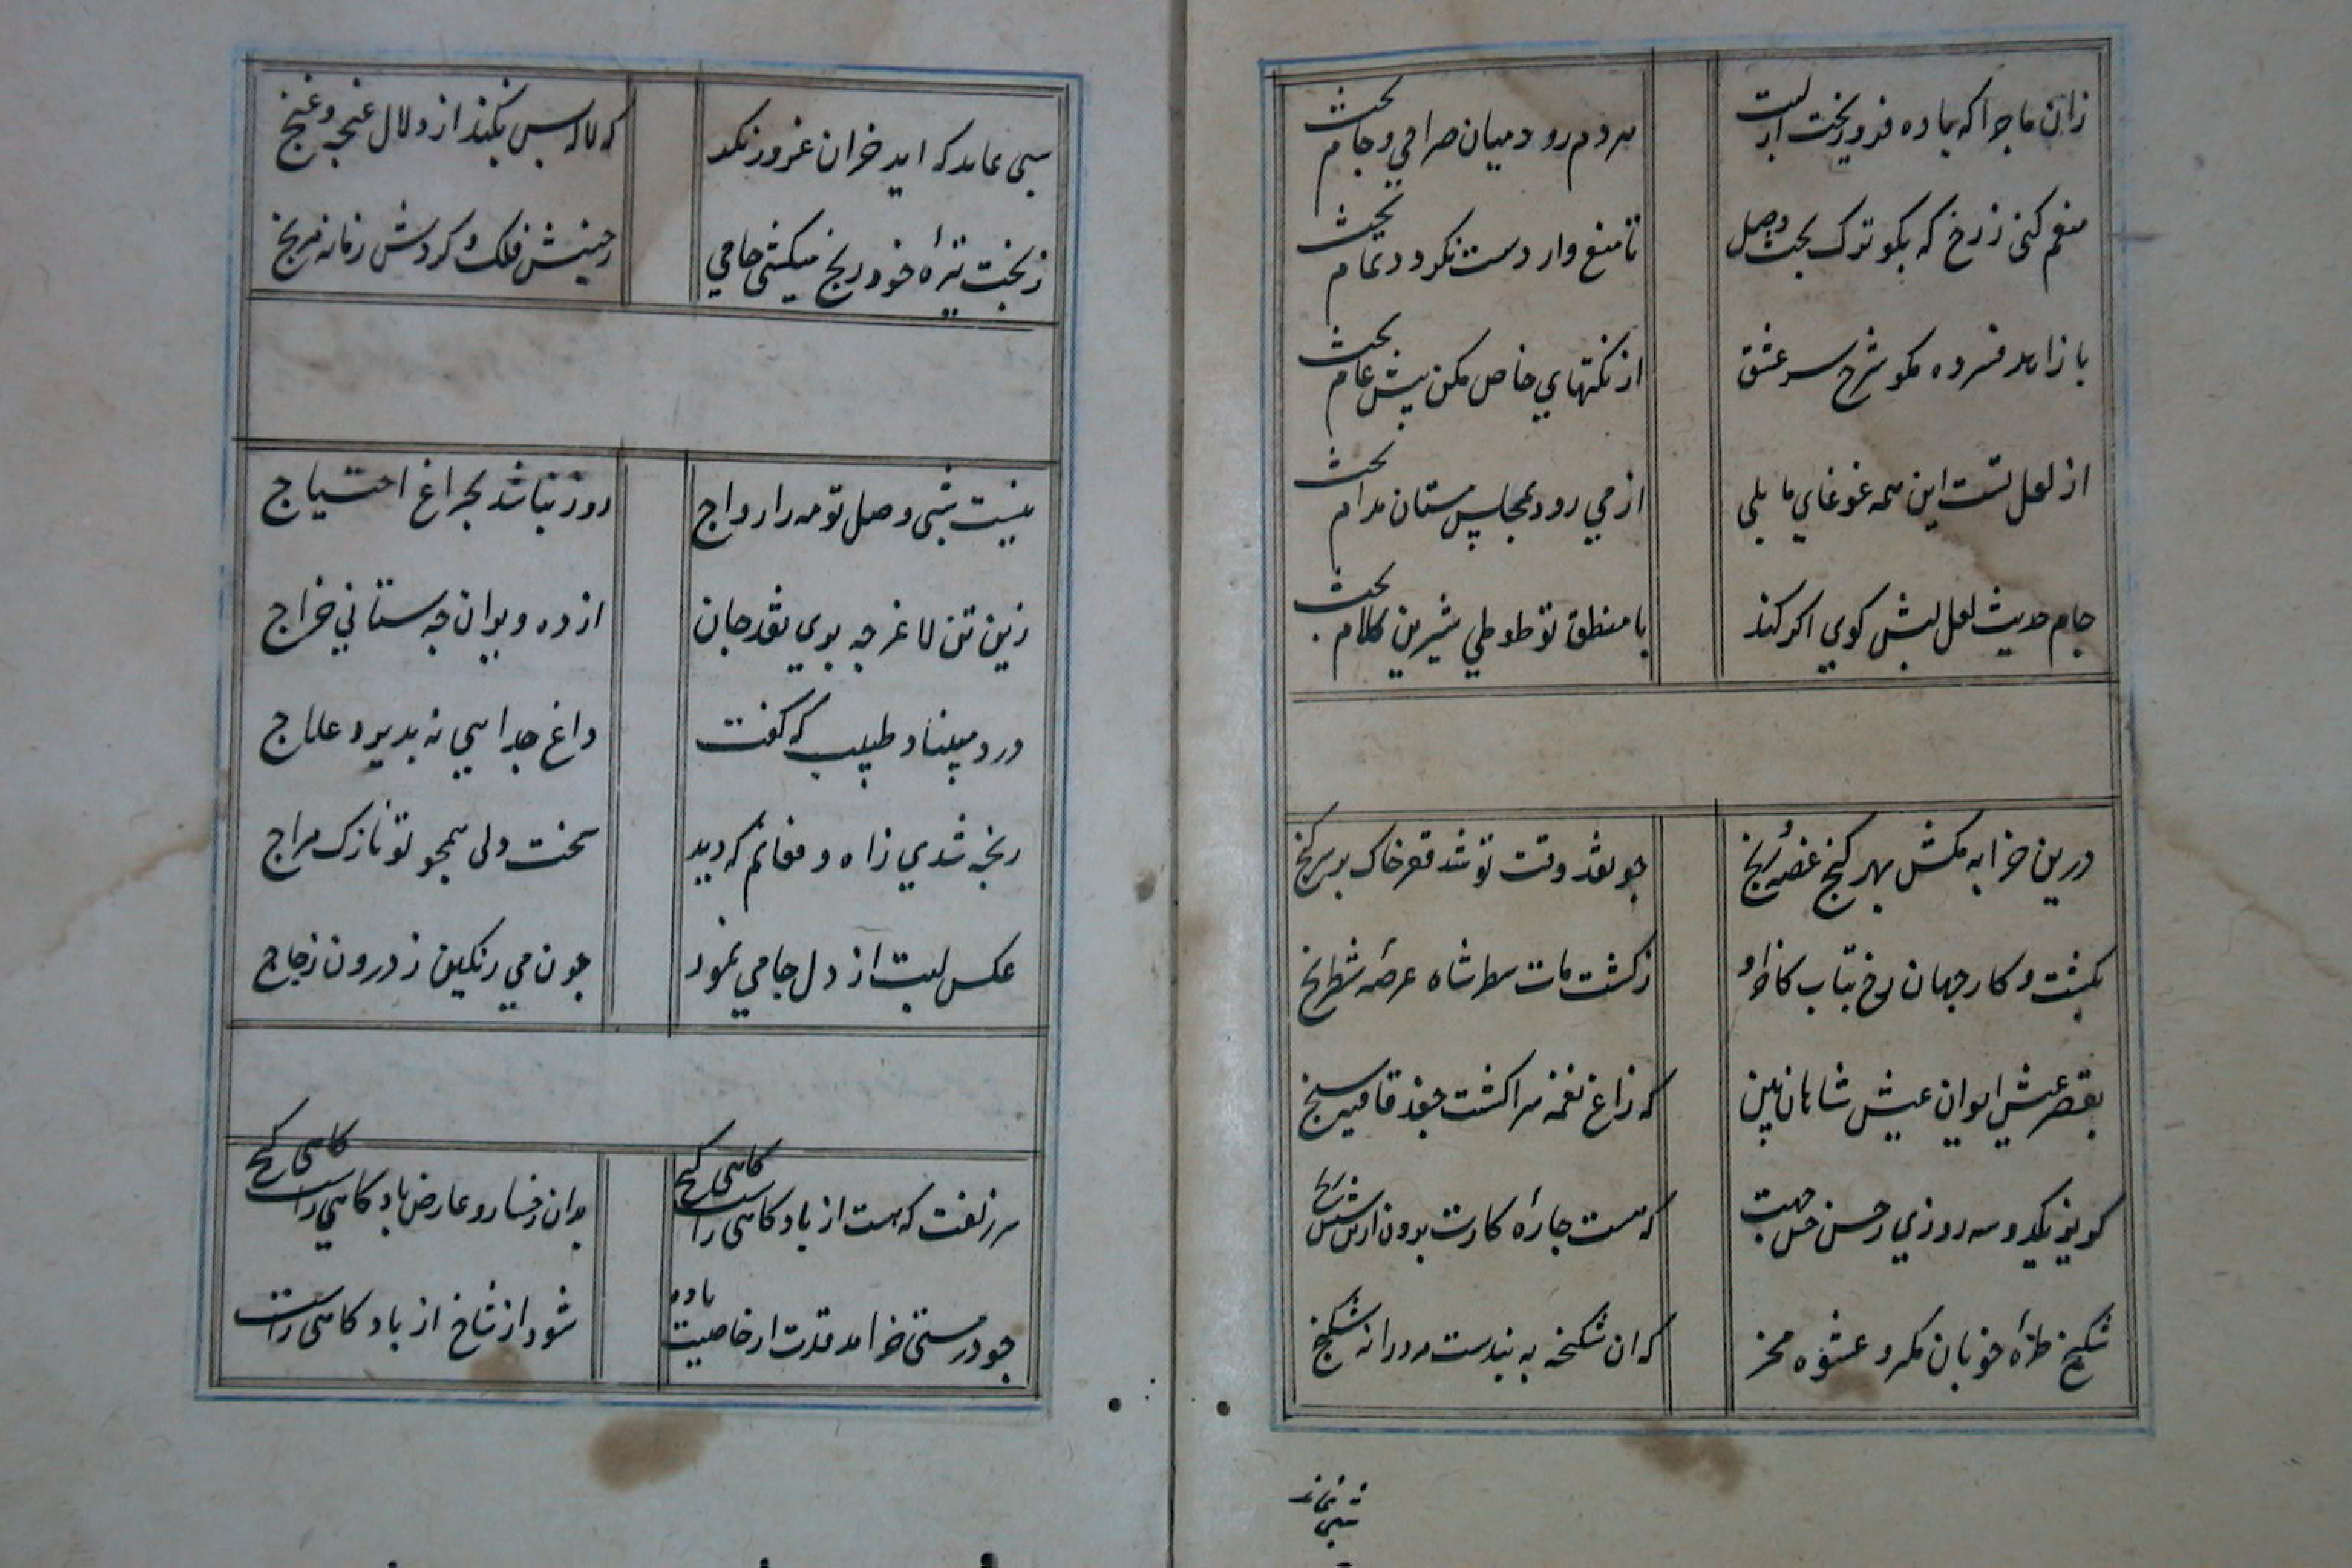 زان ماجرا که باده فرو ریخت از لبت مردم رود میان صراحی و جام بحث
منعم کنی ز رخ که بگو ترک بحث وصل تا منع وار دست نگردد تمام بحث
با زاهد فسرده مگو شرح سر عشق از نکتهای خاص مکن پیش عام بحث
از لعل تست این همه غوغای ما بلی از می رود بمجلس مستان مدام بحث
جام حدیث لعل لبش کوی اگر کند با منطق تو طوطی شیرین کلام بحث
درین خرابه مکش بهر کنج غصه و رنج چو نقد وقت تو شد فقر خاک بر سر کنج
بکشت و کار جهان رخ متاب ز کشت مات شاه عرصه شطرنج
بقصر عیش ایوان عیش شاهان بین که زاغ نغمه سرا کشت جغد قافیه سنج
جهت که هست چاره کارت برون ازین شش
شکنج طره خوبان مکر و عشوه مخر که ان شکنجه به بندست شکنج
شبی نماند
شبی نماند که اید خزان غرور نکد که لاله بس نکند از دلال غنچه و غنج
ز بخت تیره خود رنج میکشی جامی ز جنبش فلک و گردش زمانه مرنج
نیست شبی وصل تو مه را رواج روز نباشد بچراغ احتیاج
زین تن لاغر چه بوی نقد جان از ده ویران چه ستانی خراج
درد مبیناد طبیب که گفت داغ جدایی نه پذیرد علاج
رنجه شدی ز اه و فغانم که دید سخت دلی همچو تو نازک مزاج
عکس لبت از دل جامی نمود چون می رنگین ز درون زجاج
سر زلفت که هست از باد کاهی راست کاهی کج بدان رخسار و عارض باد کاهی راست کاهی کج
چو در مستی خرامد قدت از خاصیت باده شود از شاخ از باد کاهی راست